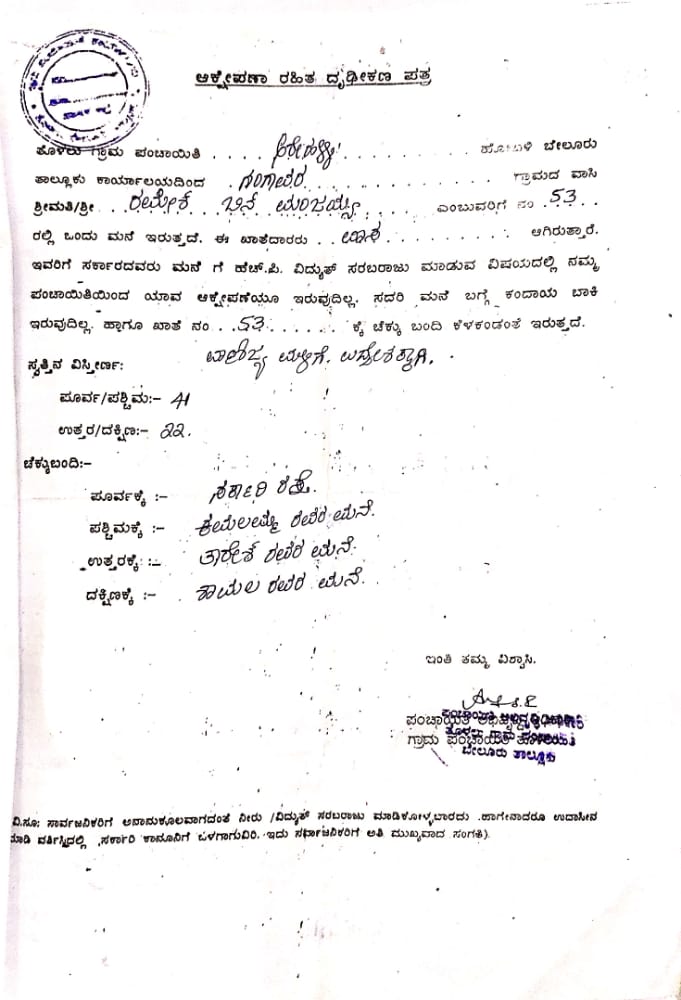 ಆಕ್ಷೇಪಣಾ ರಹಿತ ದೃಢೀಕಣ ಪತ್ರ
ತೊಳಲು ಗ್ರಾಮ ಪಂಚಾಯಿತಿ . ಅರೇಹಳ್ಳಿ ಹೋಬಳಿ ಬೇಲೂರು
ತಾಲ್ಲೂಕು ಕಾರ್ಯಾಲಯದಿಂದ . ಗಂಗಾವರ . . . . . . . . . . . . ಗ್ರಾಮದ ವಾಸಿ
ಶ್ರೀಮತಿ/ಶ್ರೀ . . . ರಮೇಶ ಬಿನ್ ಮಂಜಯ್ಯ . . . . . ಎಂಬುವರಿಗೆ ನಂ . 53 . .
ರಲ್ಲಿ ಒಂದು ಮನೆ ಇರುತ್ತದೆ. ಈ ಖಾತೆದಾರರು . . ವಾಸ . . . . . . . . . ಆಗಿರುತ್ತಾರೆ.
ಇವರಿಗೆ ಸರ್ಕಾರದವರು ಮನೆ ಗೆ ಹೆಚ್.ಪಿ. ವಿದ್ಯುತ್ ಸರಬರಾಜು ಮಾಡುವ ವಿಷಯದಲ್ಲಿ ನಮ್ಮ
ಪಂಚಾಯಿತಿಯಿಂದ ಯಾವ ಆಕ್ಷೇಪಣೆಯೂ ಇರುವುದಿಲ್ಲ. ಸದರಿ ಮನೆ ಬಗ್ಗೆ ಕಂದಾಯ ಬಾಕಿ
ಇರುವುದಿಲ್ಲ. ಹಾಗೂ ಖಾತೆ ನಂ . . 53 . . . . . . ಕ್ಕೆ ಚೆಕ್ಕು ಬಂದಿ ಕೆಳಕಂಡಂತೆ ಇರುತ್ತದೆ.
ಸ್ವತ್ತಿನ ವಿಸ್ತೀರ್ಣ: ವಾಣಿಜ್ಯ ಮಳಿಗೆ. ಉದ್ದೇಶಕ್ಕಾಗಿ.
ಪೂರ್ವ/ಪಶ್ಚಿಮ:- 41
ಉತ್ತರ/ದಕ್ಷಿಣ:- 22.
ಚೆಕ್ಕುಬಂದಿ:-
ಪೂರ್ವಕ್ಕೆ :- ಸರ್ಕಾರಿ ರಸ್ತೆ.
ಪಶ್ಚಿಮಕ್ಕೆ :- ಕಮಲಮ್ಮ ರವರ ಮನೆ.
ಉತ್ತರಕ್ಕೆ :- ತಾರೇಶ ರವರ ಮನೆ.
ದಕ್ಷಿಣಕ್ಕೆ :- ಶಾಮಲ ರವರ ಮನೆ.
ಇಂತಿ ತಮ್ಮ ವಿಶ್ವಾಸಿ.
ಪಂಚಾಯಿತಿ ಅಭಿವೃದ್ಧಿ ಅಧಿಕಾರಿ
ಗ್ರಾಮ ಪಂಚಾಯಿತಿ ತೊಳಲು
ಬೇಲೂರು ತಾಲ್ಲೂಕು
ವಿ.ಸೂ: ಸಾರ್ವಜನಿಕರಿಗೆ ಅನಾನುಕೂಲವಾಗದಂತೆ ನೀರು /ವಿದ್ಯುತ್ ಸರಬರಾಜು ಮಾಡಿಕೋಳ್ಳಬಾರದು .ಹಾಗೇನಾದರೂ ಉದಾಸೀನ
ಮಾಡಿ ವರ್ತಿಸ್ತಿದಲ್ಲಿ ,ಸರ್ಕಾರಿ ಕಾನೂನಿಗೆ ಒಳಗಾಗುವಿರಿ. ಇದು ಸರ್ಧಾಜನಿಕರಿಗೆ ಅತಿ ಮುಖ್ಯವಾದ ಸಂಗತಿ).